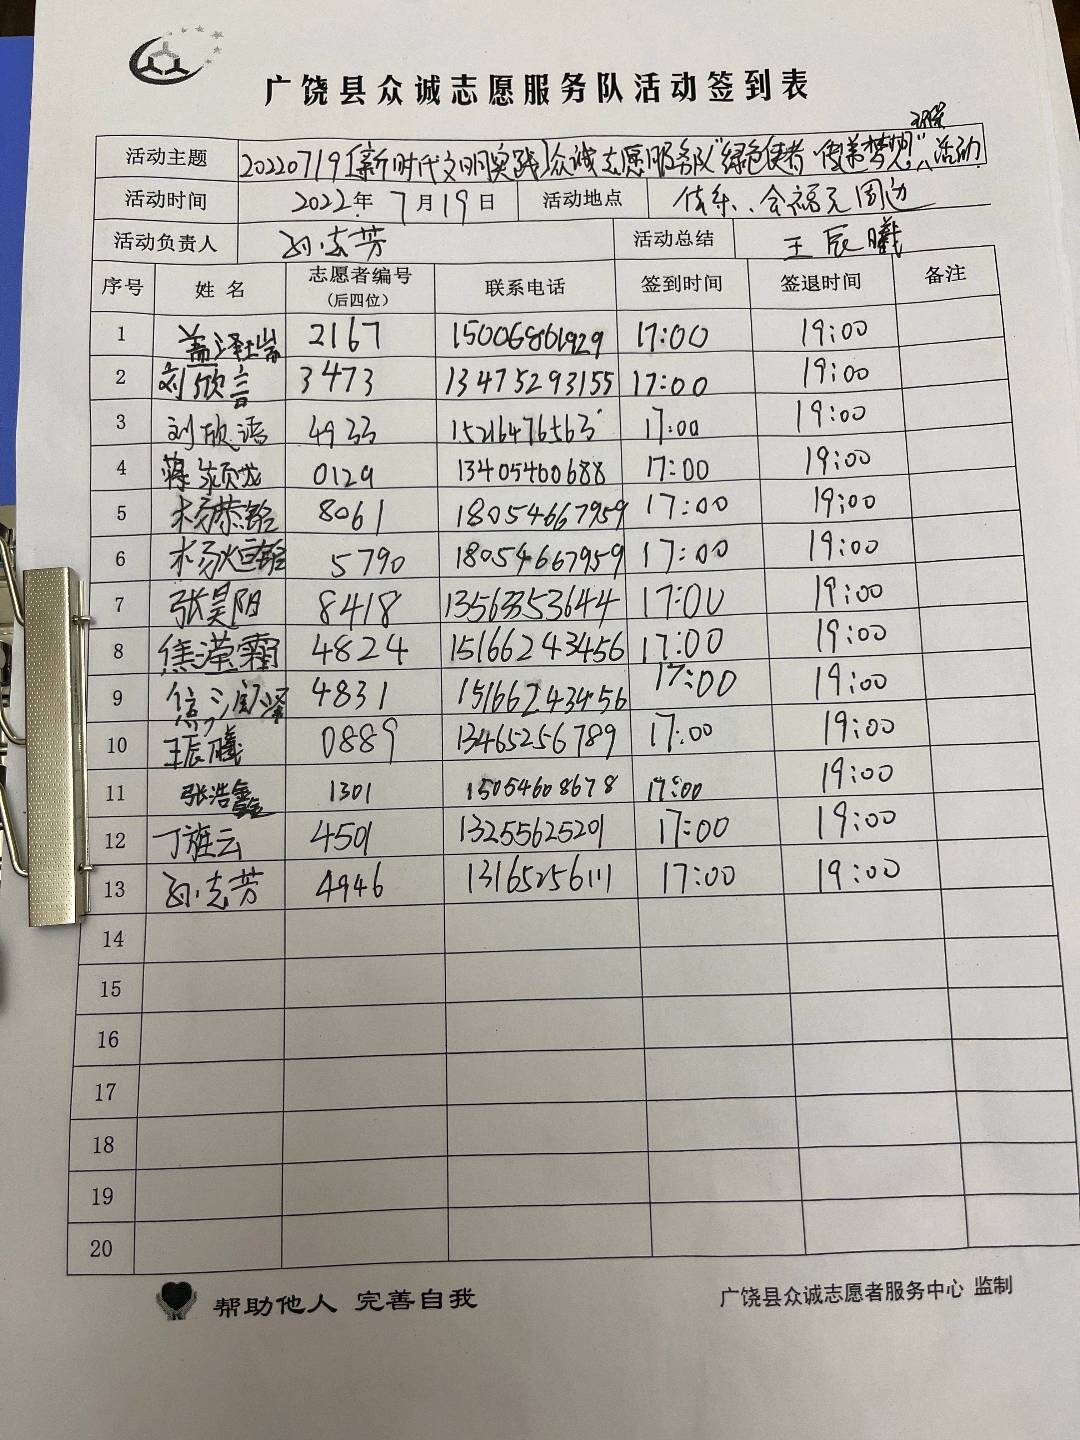 广饶县众诚志愿服务队活动签到表
活动主题 20220719[新时代文明实践]众诚志愿服务队"绿色使者·传递梦想"环保活动
活动时间 2022年 7月19日 活动地点 周边
活动负责人 孙志芳 活动总结 王辰曦
序号 姓名 志愿者编号(后四位) 联系电话 签到时间 签退时间 备注
1 盖泽 2167 15006861929 17:00 19:00
2 刘欣言 3473 13475293155 17:00 19:00
3 刘欣语 4933 15216476563 17:00 19:00
4 蒋 0129 13405460688 17:00 19:00
5 杨 8061 18054667959 17:00 19:00
6 杨 5790 18054667959 17:00 19:00
7 张昊阳 8418 13563353644 17:00 19:00
8 焦滢霜 4824 15166243456 17:00 19:00
9 4831 15166243456 17:00 19:00
10 王辰曦 0889 13465256789 17:00 19:00
11 张浩鑫 1301 15054608678 17:00 19:00
12 丁旌云 4501 13255625201 17:00 19:00
13 孙志芳 4946 13165256111 17:00 19:00
14
15
16
17
18
19
20
帮助他人 完善自我 广饶县众诚志愿者服务中心 监制